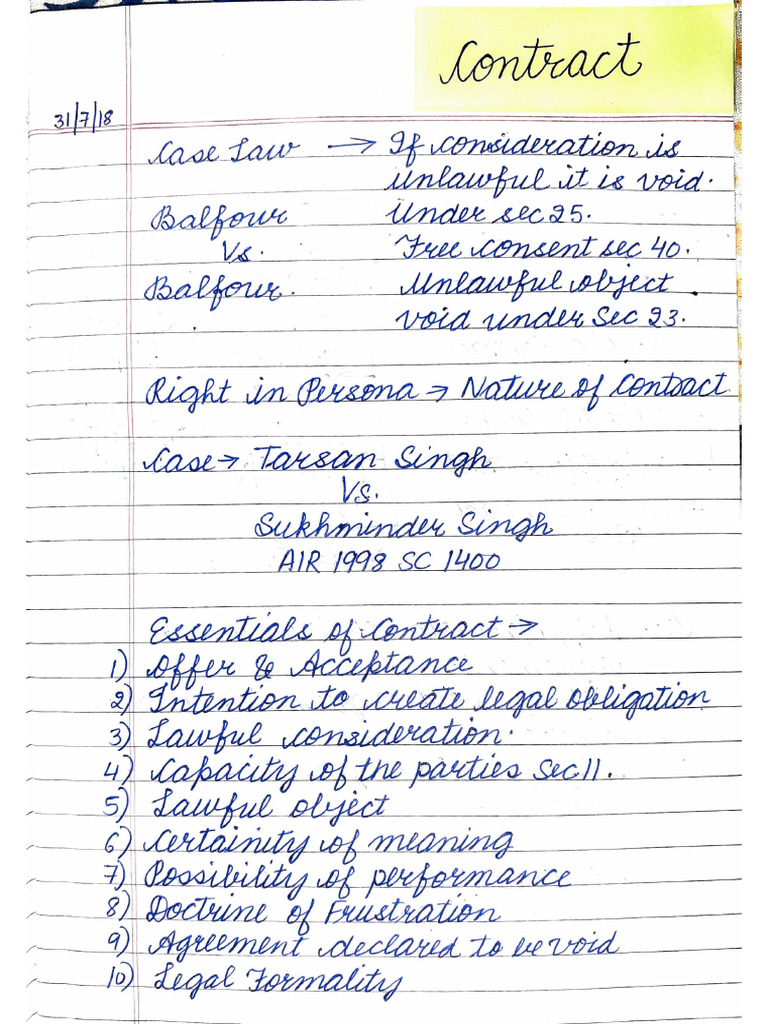 Contract
31/7/18
Case Law → If consideration is
unlawful it is void.
Balfour Under sec 25.
Vs. Free consent sec 40.
Balfour. Unlawful object
void under Sec 23.
Right in Persona → Nature of Contract
Case → Tarsan Singh
VS.
Sukhminder Singh
AIR 1998 SC 1400
Essentials of Contract →
1) Offer & Acceptance
2) Intention to create legal obligation
3) Lawful consideration.
4) Capacity of the parties Sec 11.
5) Lawful object
6) Certainity of meaning
7) Possibility of performance
8) Doctrine of Frustration
9) Agreement declared to be void
10) Legal Formality